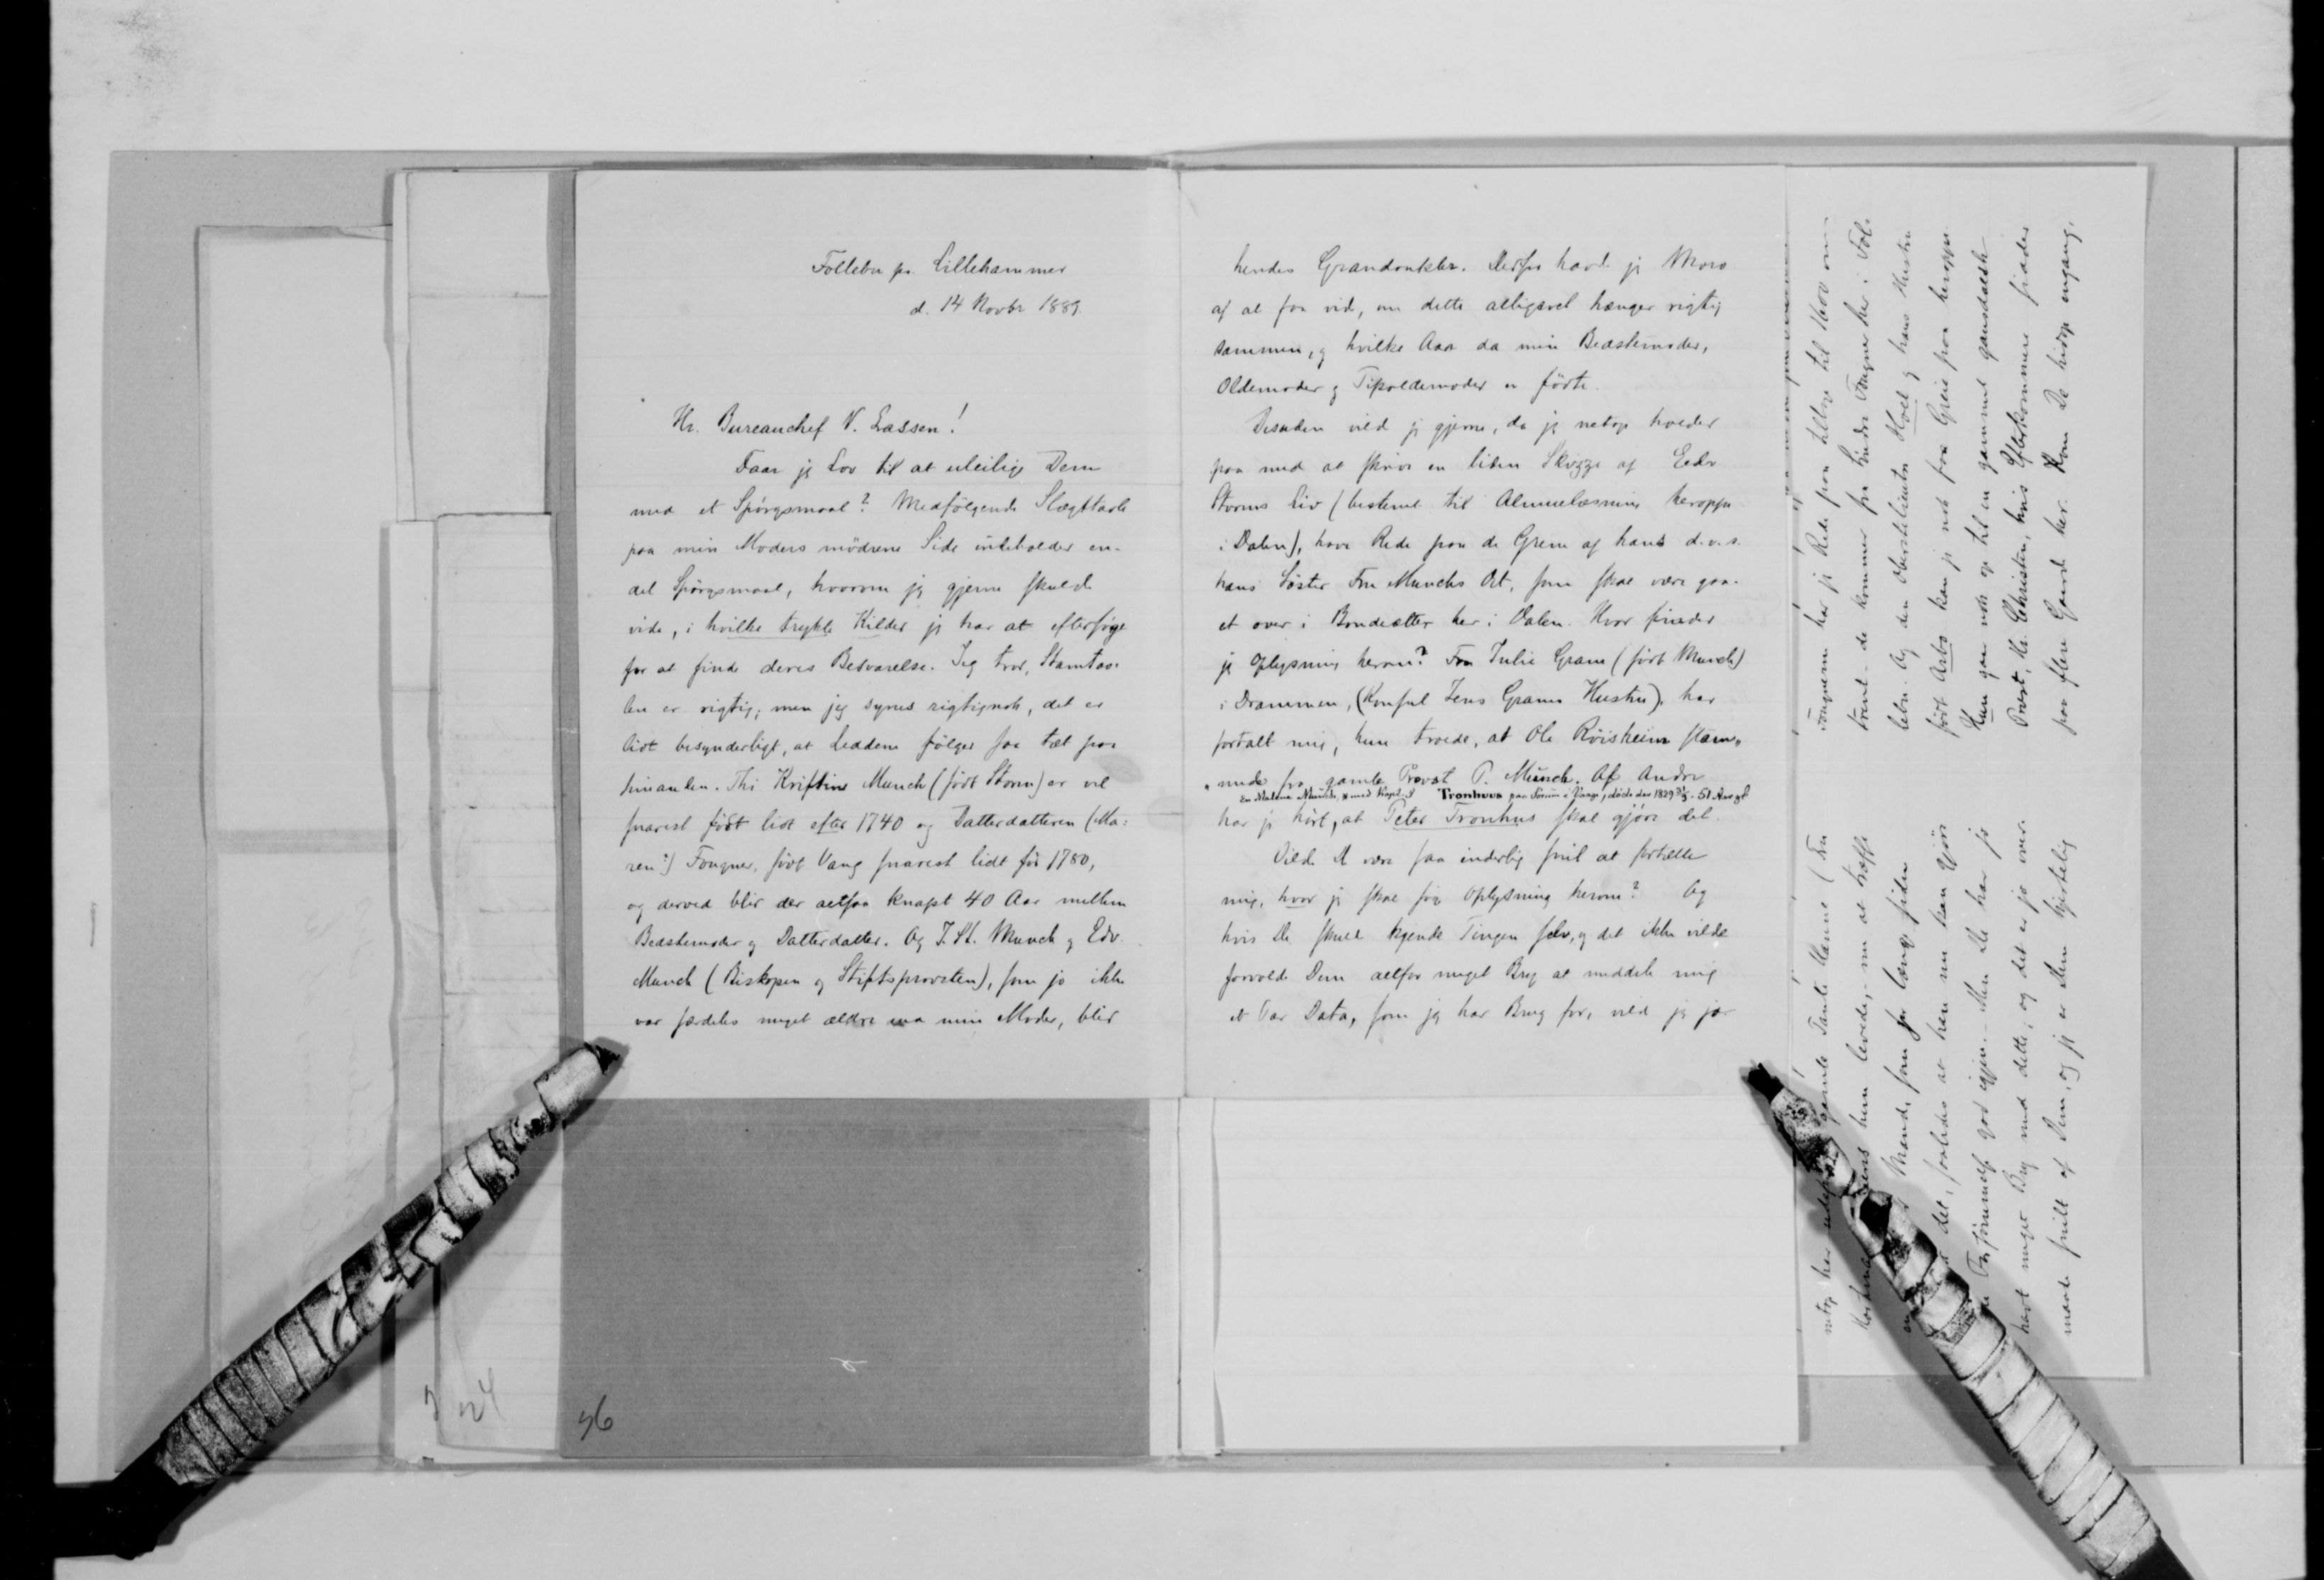 Follebu pr. Lillehammer
d. 14 Novbr 1889.
Hr. Bureauchef N. Lassen!
Faar jeg Lov til at uleilige Dem
med et Spörgsmaal? Medfölgende Slægttavle
paa min Moders mödrene Side indeholder en-
del Spörgsmaal, hvorom jeg gjerne skulde
vide, i hvilke trykte Kilder jeg har at eftersöge
for at finde deres Besvarelse. Jeg tror, Stamtav-
len er rigtig; men jeg synes rigtignok, det er
lidt besynderligt, at Leddene fölger saa tæt paa
hinanden. Thi Kristine Munch (född Storm) er vel
snarest födt lidt efter 1740 og Datterdatteren (Ma=
ren?) Fougner, födt Vang snarest lidt för 1780,
og derved blir der altsaa knapt 40 Aar mellem
Bedstemoder og Datterdatter. Og J. St. Munch og Edv.
Munch (Biskopen og Stiftsprovsten), som jo ikke
var særdeles meget ældre end min Moder, blir
hendes Grandonkler. Derfor havde jeg Moro
af at faa vide, om dette alligevel hænger rigtig
sammen, og hvilke Aar da min Bedstemoder,
Oldemoder og Tipoldemoder er födte.
Desuden vilde jeg gjerne, da jeg netop holder
paa med at skrive en liden Skizze af Edv
Storms Liv (bestemt til Almuelæsning heroppe
i Dalen), have Rede paa de Grene af hans d.v.s.
hans Söster Fru Munchs Æt, som skal være gaa-
et over i Bondeætter her i Dalen. Hvor finder
jeg Oplysning herom? Fru Julie Gram (födt Munch)
i Drammen, (Konsul Jens Grams Hustru), har
fortalt mig, hun troede, at Ole Röisheim stam-
mede fra gamle Provst P. Munch. Af Andre
En Malene Munch, x med Kapt. P Tronhuus paa Sörum i Vaage, döde der 1829 31/3. 51 Aar gl
har jeg hört, at Peter Tronhus skal gjöre det.
Vilde De være saa inderlig snil at fortælle
mig, hvor jeg skal söge Oplysning herom? Og
hvis De skulde kjende Tingen selv, og det ikke vilde
forvolde Dem altfor meget Bry at meddele mig
et Par Data, som jeg har Brug for, vilde jeg jo
Fougnerne har jeg Rede paa tilbage til 1600 om-
trent - de kommer fra söndre Fougner her i Fol-
lebu. Og den Oberstlieutn Hoel og hans Hustru
födt Arbo kan jeg nok faa Greie paa heroppe.
Hun gaar nok op til en gammel gausdalsk
Prest, Hr. Christen, hvis Efterkommere sidder
paa flere Gaarde her. Kom De hidop engang,
gamle Tante Hanne (Fru
hun levede, - om at træffe
en Mand, som for længe siden
det, saaledes at han nu kan gjöre
god igjen. - Men De har jo
havt meget Bry med dette, og det er jo over-
maade snilt af Dem, og jeg er Dem hjertelig
24
46